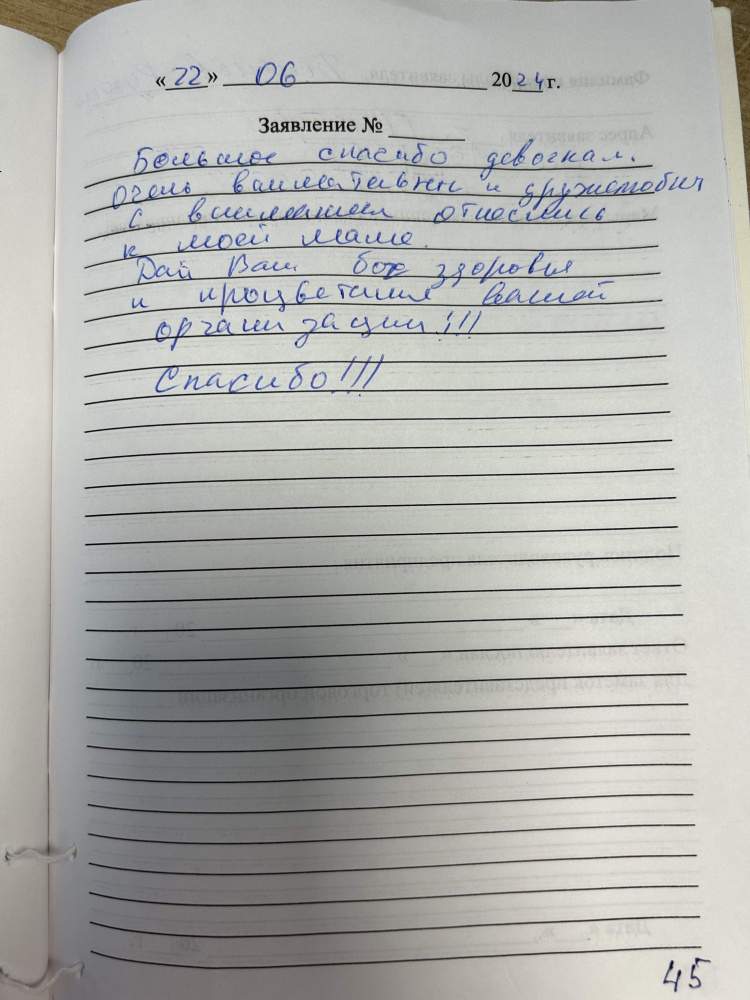 « 22 » 06 2024 г.
Заявление №
Большое спасибо девочкам.
Очень внимательны и
С вниманием относились
к моей маме.
Дай Вам бог здоровья
и процветания вашей
организации!!!
Спасибо!!!
45